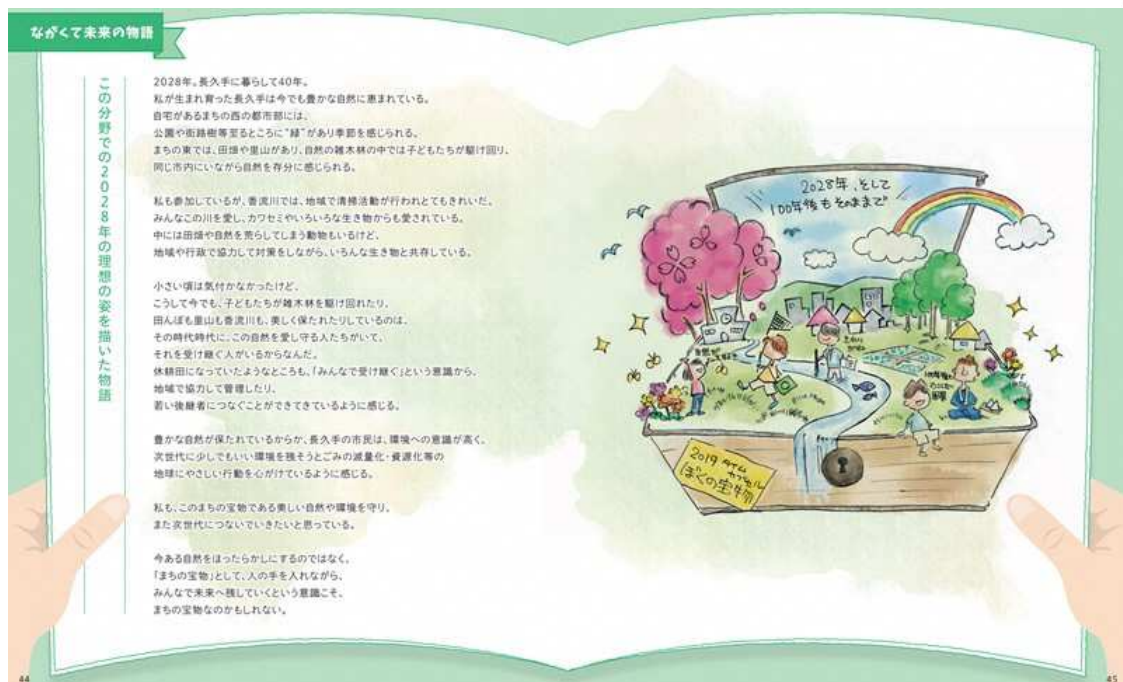 ながくて未来の物語
この分野での2028年の理想の姿を描いた物語
2028年。長久手に暮らして40年。
私が生まれ育った長久手は今でも豊かな自然に恵まれている。
自宅があるまちの西の都市部には、
公園や街路樹等至るところに“緑”があり季節を感じられる。
まちの東では、田畑や里山があり、自然の雑木林の中では子どもたちが駆け回り、
同じ市内にいながら自然を存分に感じられる。
私も参加しているが、香流川では、地域で清掃活動が行われとてもきれいだ。
みんなこの川を愛し、カワセミやいろいろな生き物からも愛されている。
中には田畑や自然を荒らしてしまう動物もいるけど、
地域や行政で協力して対策をしながら、いろんな生き物と共存している。
小さい頃は気付かなかったけど、
こうして今でも、子どもたちが雑木林を駆け回れたり、
田んぼも里山も香流川も、美しく保たれたりしているのは、
その時代時代に、この自然を愛し守る人たちがいて、
それを受け継ぐ人がいるからなんだ。
休耕田になっていたようなところも、「みんなで受け継ぐ」という意識から、
地域で協力して管理したり、
若い後継者につなぐことができてきているように感じる。
豊かな自然が保たれているからか、長久手の市民は、環境への意識が高く、
次世代に少しでもいい環境を残そうとごみの減量化・資源化等の
地球にやさしい行動を心がけているように感じる。
私も、このまちの宝物である美しい自然や環境を守り、
また次世代につないでいきたいと思っている。
今ある自然をほったらかしにするのではなく、
「まちの宝物」として、人の手を入れながら、
みんなで未来へ残していくという意識こそ、
まちの宝物なのかもしれない。
2028年、そして
100年後もそのままで
2019 タイム
カプセル
ぼくの宝物
44
45